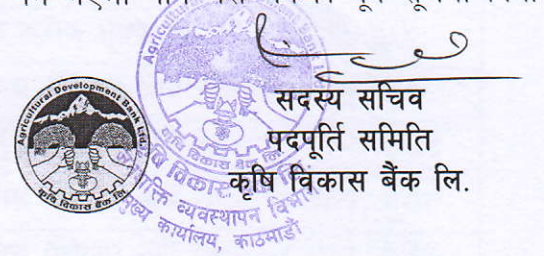 सदस्य सचिव
पदपूर्ति समिति
कृषि विकास बैंक लि.
Agricultural Development Bank Ltd.
कृषि विकास बैंक लि.
Agricultural
कृषि विकास बैंक लि.
कृषि विकास
व्यवस्थापन
मुख्य कार्यालय, काठमाडौं